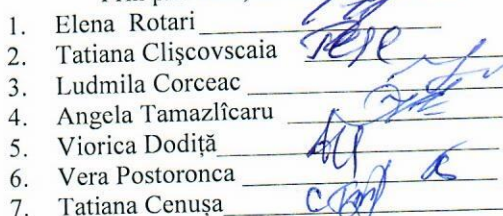 1. Elena Rotari
2. Tatiana Clișcovscaia
3. Ludmila Corceac
4. Angela Tamazlîcaru
5. Viorica Dodiță
6. Vera Postoronca
7. Tatiana Cenușa